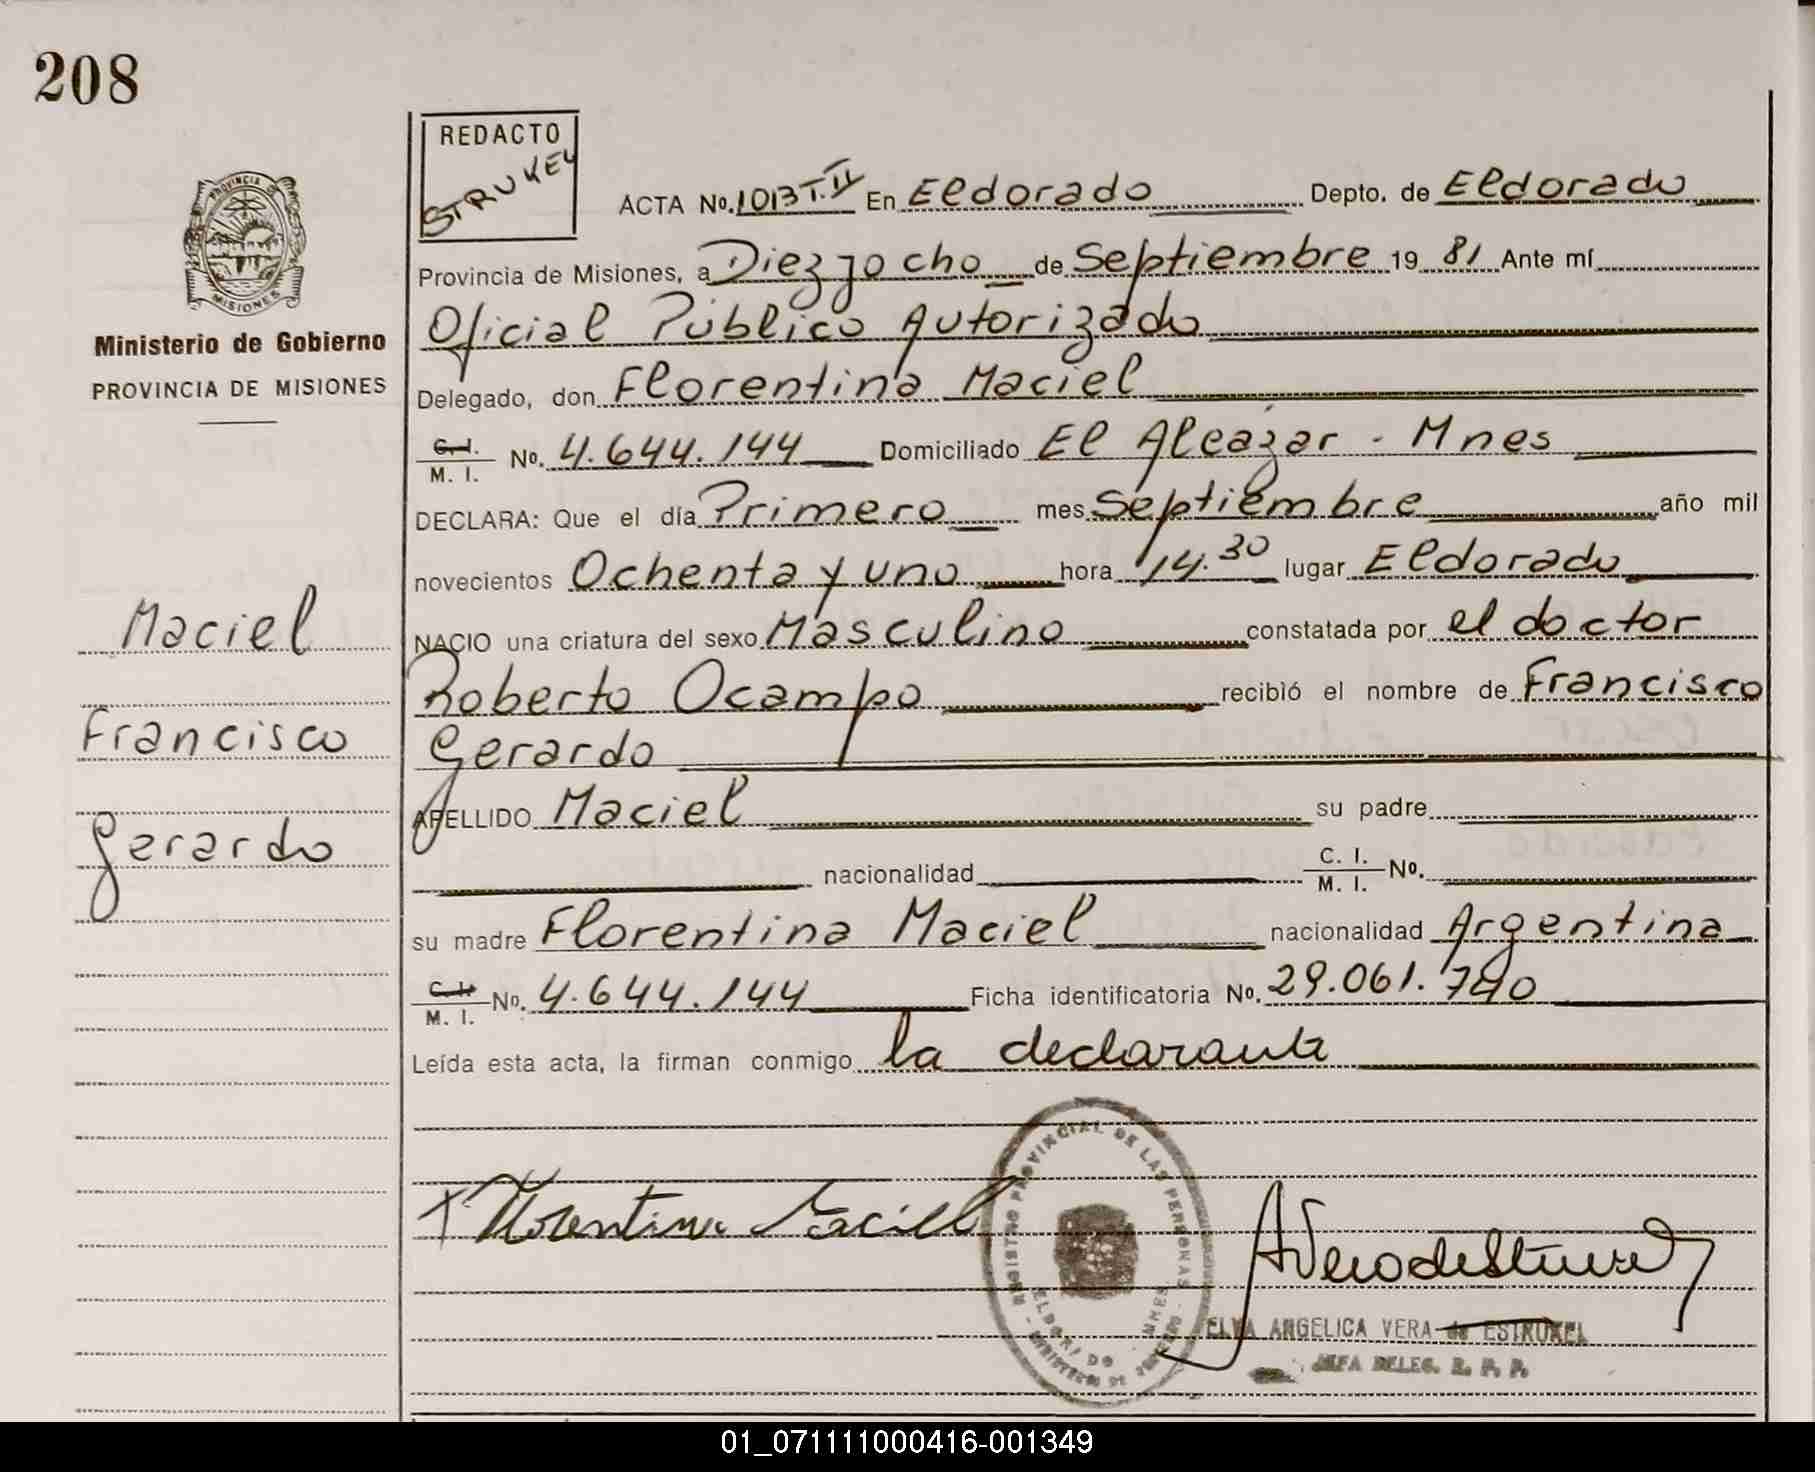 208
REDACTO
STRUKEL
ACTA No. 1013 T.II En Eldorado Depto. de Eldorado
Provincia de Misiones, a Diez y ocho de Septiembre 19 81 Ante mí
Oficial Público Autorizado
Delegado, don Florentina Maciel
C. I.
M. I. No. 4.644.144 Domiciliado El Alcazar - Mnes
DECLARA: Que el día Primero mes Septiembre año mil
novecientos Ochenta y uno hora 14.30 lugar Eldorado
NACIO una criatura del sexo Masculino constatada por el doctor
Roberto Ocampo recibió el nombre de Francisco
Gerardo
APELLIDO Maciel su padre
nacionalidad C. I.
M. I. No.
su madre Florentina Maciel nacionalidad Argentina
C. I.
M. I. No. 4.644.144 Ficha identificatoria No. 29.061.740
Leída esta acta, la firman conmigo la declarante
Florentina Maciel
PROVINCIA DE
MISIONES
Ministerio de Gobierno
PROVINCIA DE MISIONES
Maciel
Francisco
Gerardo
REGISTRO PROVINCIAL DE LAS PERSONAS
ELDORADO MNES
ELVA ANGELICA VERA de ESTRUKEL
JEFA DELEG. R. P. P.
01_071111000416-001349